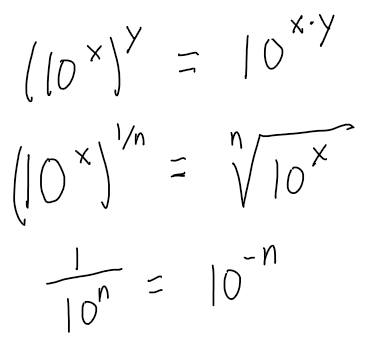 (10^x)^y = 10^{x·y}
(10^x)^{1/n} = \sqrt[n]{10^x}
\frac{1}{10^n} = 10^{-n}